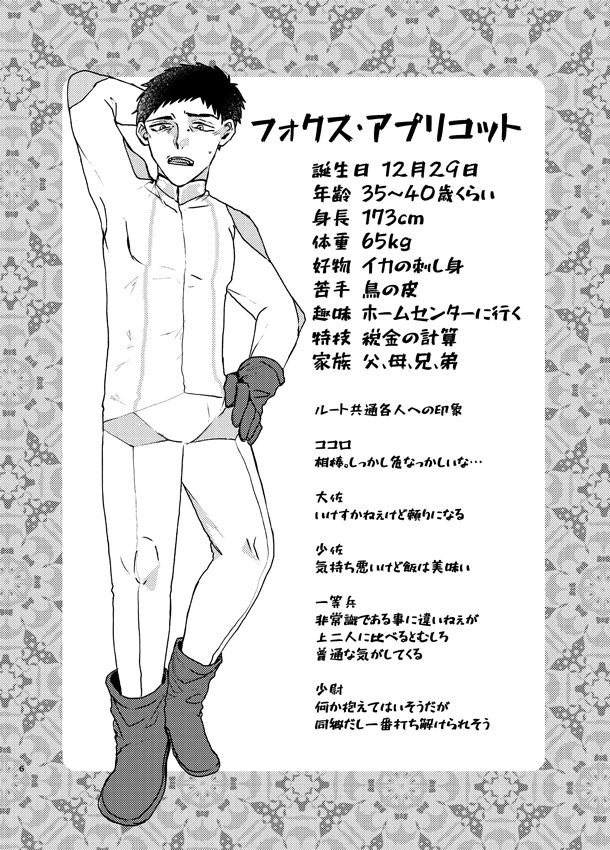 フォクス・アプリコット
誕生日 12月29日
年齢 35～40歳くらい
身長 173cm
体重 65kg
好物 イカの刺し身
苦手 鳥の皮
趣味 ホームセンターに行く
特技 税金の計算
家族 父、母、兄、弟
ルート共通各人への印象
ココロ
相棒。しっかし危なっかしいな…
大佐
いけすかねえけど頼りになる
少佐
気持ち悪いけど飯は美味い
一等兵
非常識である事に違いねぇが
上二人に比べるとむしろ
普通な気がしてくる
少尉
何か抱えてはいそうだが
同郷だし一番打ち解けられそう
6